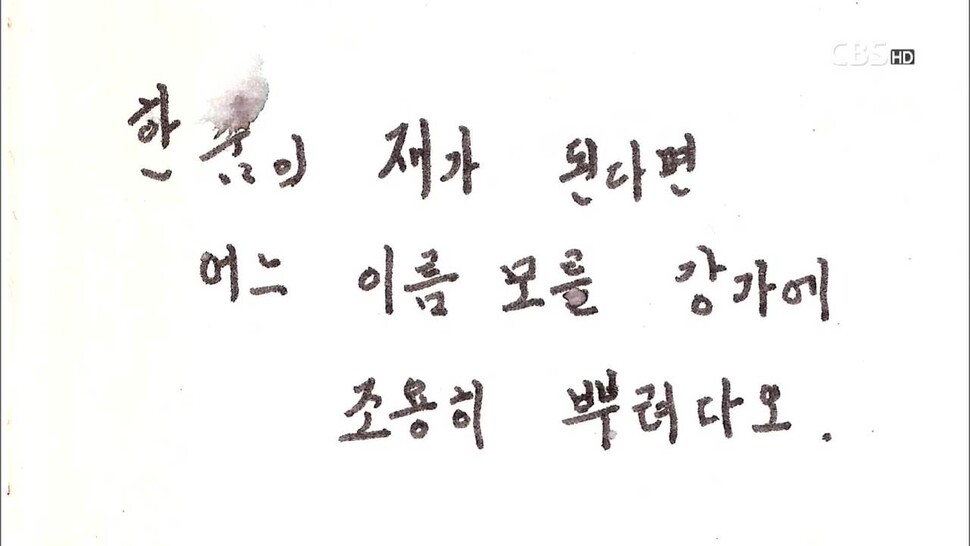 CBS HD
한 줌의 재가 된다면
어느 이름 모를 강가에
조용히 뿌려다오.